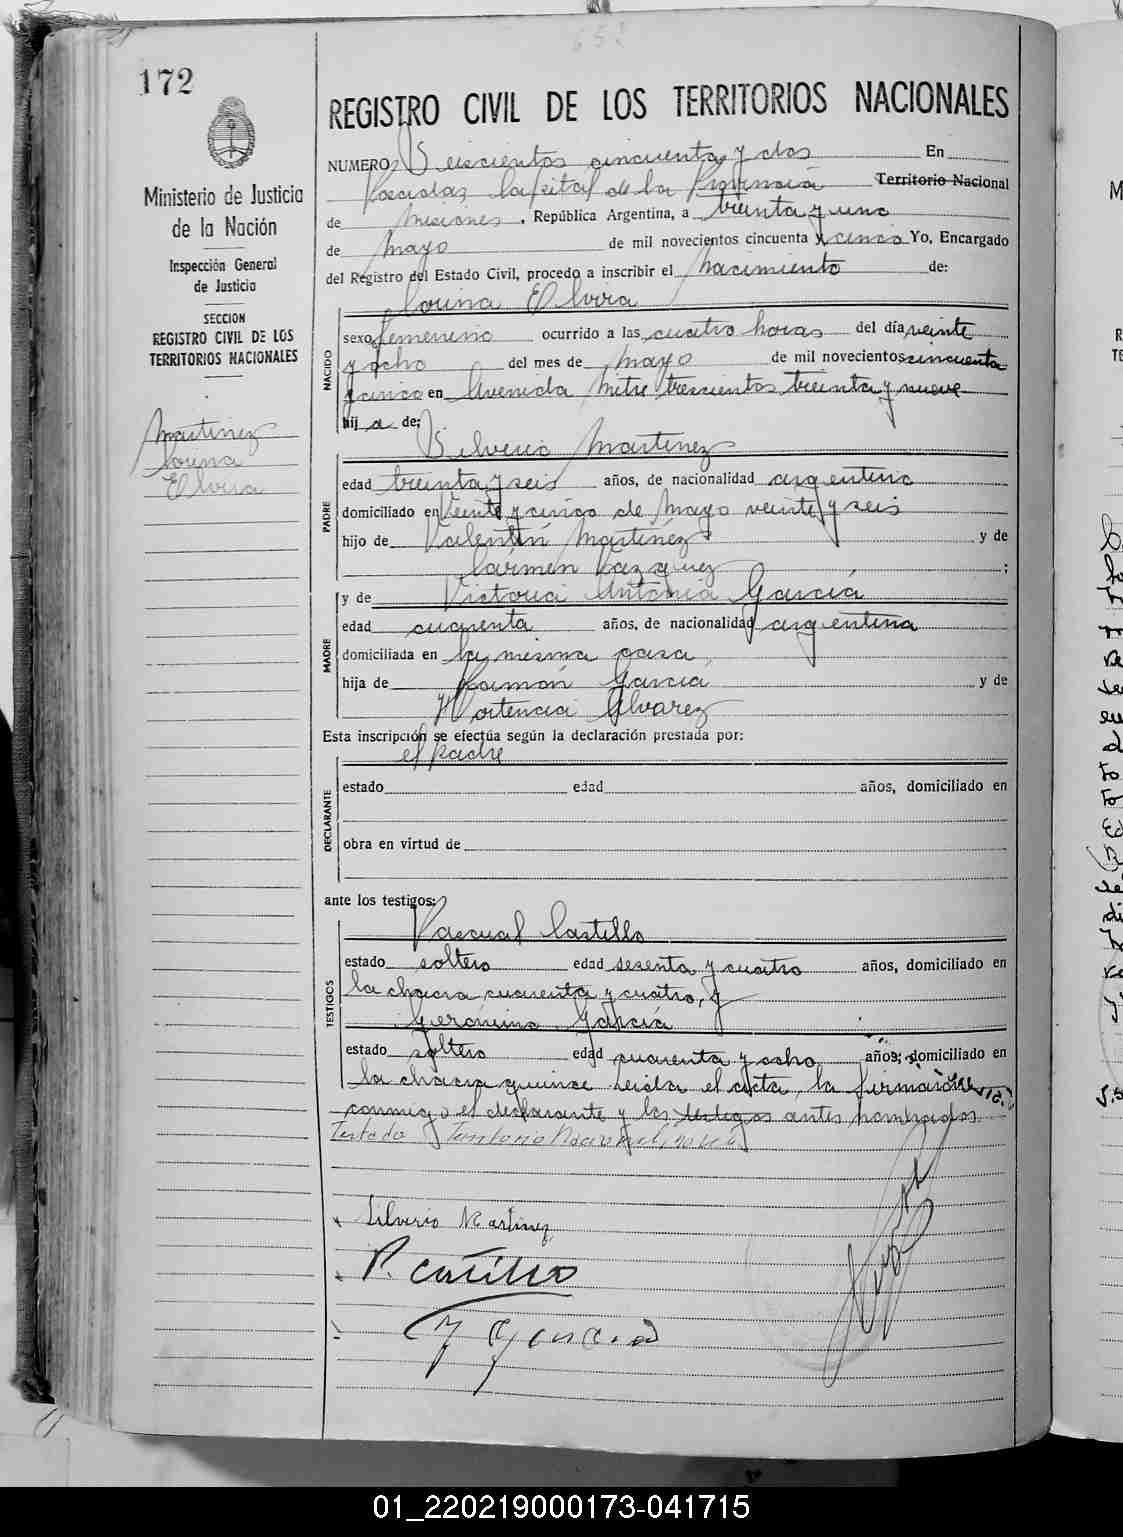 652
172
Ministerio de Justicia
de la Nación
Inspección General
de Justicia
SECCION
REGISTRO CIVIL DE LOS
TERRITORIOS NACIONALES
Martinez
Elvira
REGISTRO CIVIL DE LOS TERRITORIOS NACIONALES
NUMERO Seiscientos cincuenta y dos En
Posadas, Capital de la Provincia Territorio Nacional
de Misiones, República Argentina, a treinta y uno
de Mayo de mil novecientos cincuenta y cinco Yo, Encargado
del Registro del Estado Civil, procedo a inscribir el Nacimiento de:
Elvira
NACIDO
sexo femenino ocurrido a las cuatro horas del día veinte
y ocho del mes de Mayo de mil novecientos cincuenta
y cinco en Avenida Mitre trescientos treinta y nueve
hij a de:
Silverio Martinez
PADRE
edad treinta y seis años, de nacionalidad argentino
domiciliado en Veinte y cinco de Mayo veinte y seis
hijo de Valentín Martinez y de
Cármen Vazquez ;
y de Victoria Antonia García
MADRE
edad cuarenta años, de nacionalidad argentina
domiciliada en la misma casa,
hija de Ramón Garcia y de
Hortencia Alvarez
Esta inscripción se efectúa según la declaración prestada por:
el padre
DECLARANTE
estado edad años, domiciliado en
obra en virtud de
ante los testigos:
Pascual Castillo
TESTIGOS
estado soltero edad sesenta y cuatro años, domiciliado en
la chacra cuarenta y cuatro, y
Gerónimo García
estado soltero edad cuarenta y ocho años, domiciliado en
la chacra quince Leida el acta, la firmaron
conmigo el declarante y los testigos antes nombrados.
Testado Territorio Nacional, no vale
Silverio Martinez
P. Castillo
Garcia
01_220219000173-041715